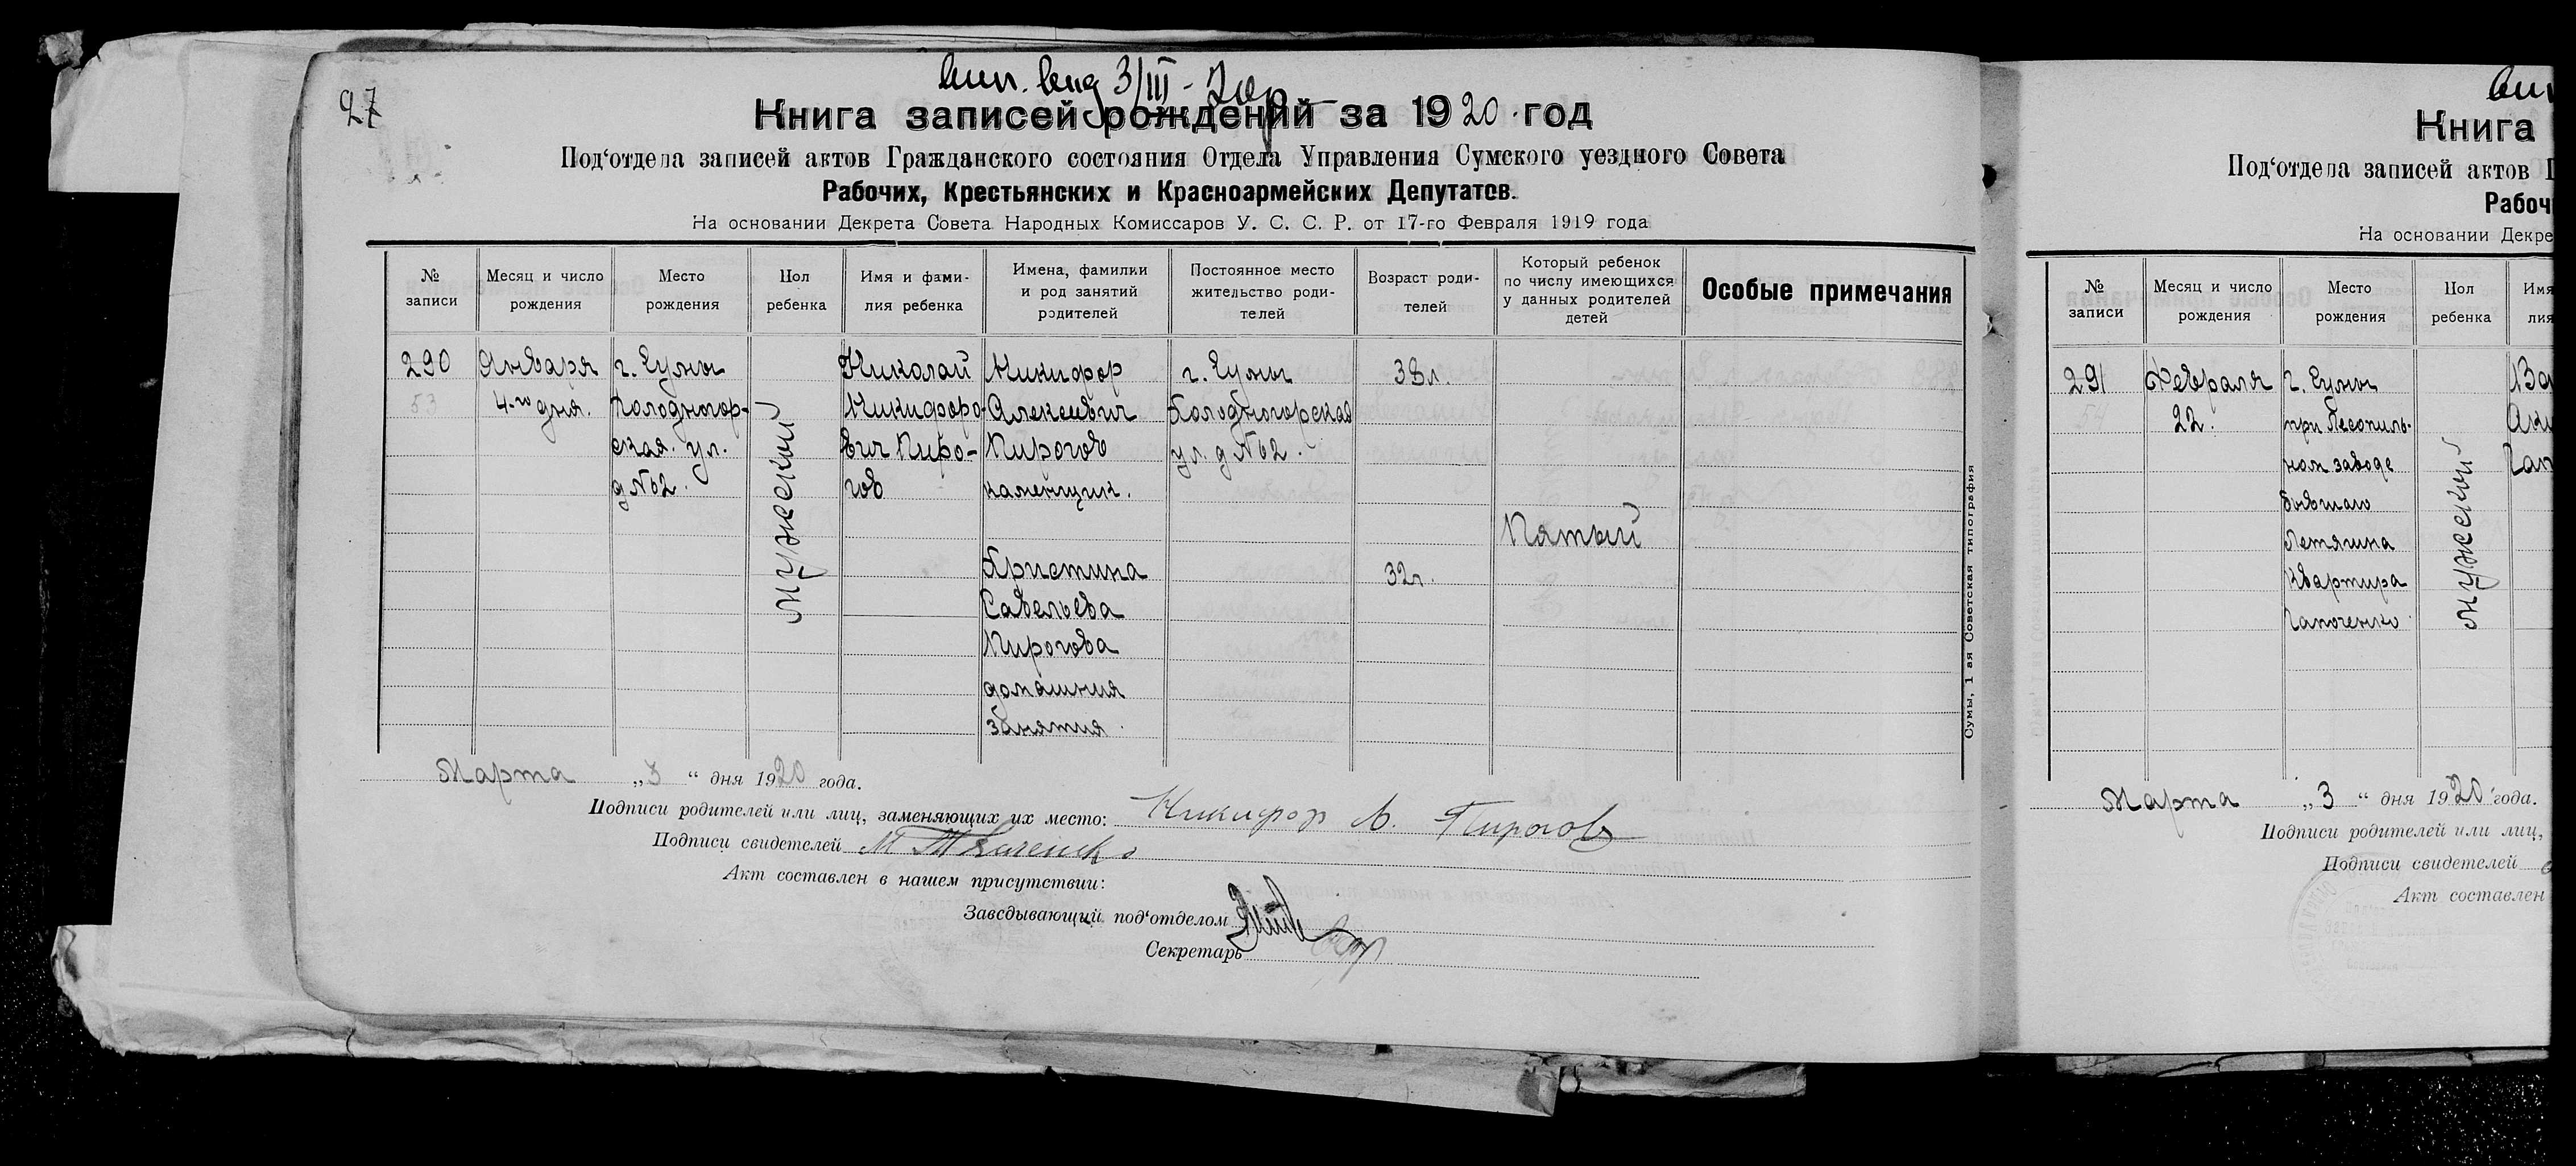 27
вып. вид 3/III -
Книга записей рождений за 1920 год
Под'отдела записей актов Гражданского состояния Отдела Управления Сумского уездного Совета
Рабочих, Крестьянских и Красноармейских Депутатов.
На основании Декрета Совета Народных Комиссаров У. С. С. Р. от 17-го Февраля 1919 года
№ записи
Месяц и число рождения
Место рождения
Пол ребенка
Имя и фамилия ребенка
Имена, фамилии и род занятий родителей
Постоянное место жительство родителей
Возраст родителей
Который ребенок по числу имеющихся у данных родителей детей
Особые примечания
290
53
Января
4-го дня.
г. Сумы
Холодногор-
ская. ул.
д №62.
мужской
Николай
Никифоро-
вич Пиро-
гов
Никифор
Алексеевич
Пирогов
каменщик.
Христина
Савельева
Пирогова
домашния
занятия.
г. Сумы
Холодногорская
ул. д №62.
38л.
32л.
Пятый
Сумы, 1 ая Советская типография
Марта „3“ дня 1920 года.
Подписи родителей или лиц, заменяющих их место: Никифор А. Пирогов
Подписи свидетелей М Ткаченко
Акт составлен в нашем присутствии:
Заведывающий под'отделом
Секретарь
Книга
Под'отдела записей актов Г
Рабоч
На основании Декре
№ записи
Месяц и число рождения
Место рождения
Пол ребенка
Имя
лия
291
54
Февраля
22.
г. Сумы
при Лесопиль-
ном заводе
бывшаго
Летягина
квартира
Гапоченко
мужской
Марта „3“ дня 1920 года.
Подписи родителей или лиц,
Подписи свидетелей
Акт составлен